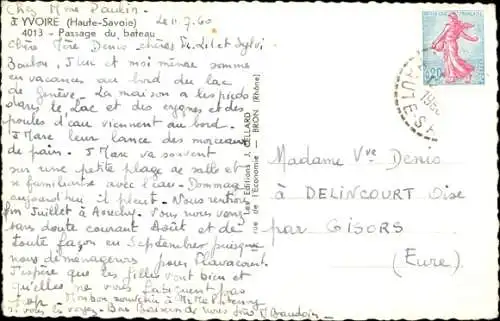 Chez Mme Paulin
YVOIRE (Haute-Savoie)
4013 - Passage du bateau
Le 11.7.60
Chère Mère Denis - chères et Sylvi
Jluc et moi même somme
en vacances au bord du lac
de Genève - La maison a les pieds
dans le lac et des cygnes et des
poules d'eau viennent au bord.
J Marc leur lance des morceaux
de pain. J Marc va souvent
sur une petite plage de sable et
se familiarise avec l'eau - Dommage
aujourd'hui il pleut - Nous rentrons
fin Juillet à . Nous vous verrons
sans doute courant Août et de
toute façon en Septembre puisque
nous déménagerons pour
J'espère que les filles vont bien et
qu'elles ne vous fatiguent pas
trop - Mon bon souvenir à Mr Mme
si vous les voyez - Bons Baisers de nous tous
Les Editions J. CELLARD
rue de l'Economie - BRON (Rhône)
REPUBLIQUE FRANÇAISE
0,20
Madame Vve Denis
à DELINCOURT Oise
par GISORS
(Eure)